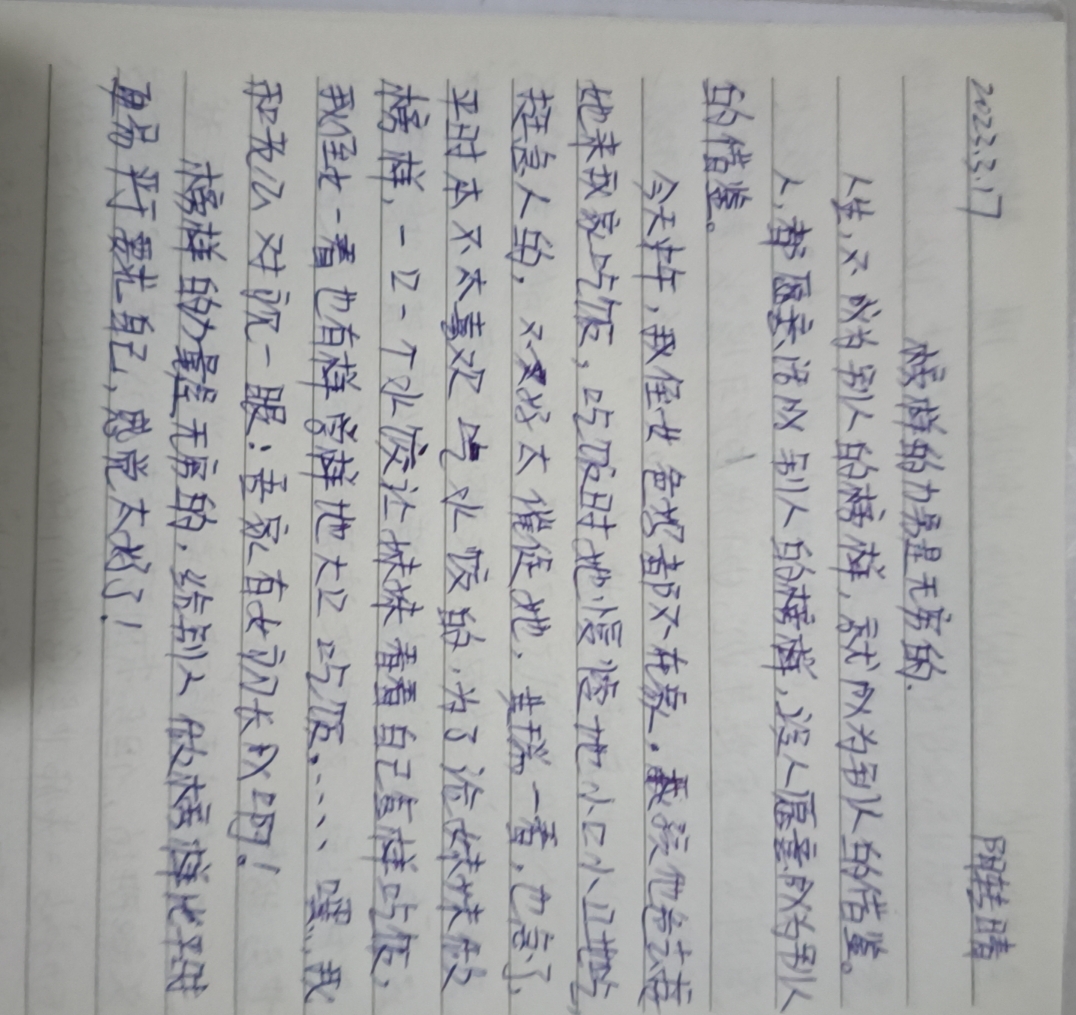 2023.3.17 阴转晴
榜样的力量是无穷的.
人生,不成为别人的榜样,就成为别人的借鉴。
人,都愿意活成别人的榜样,没人愿意成为别人
的借鉴。
今天中午,我侄女爸妈都不在家.
她来我家吃饭,吃饭时她慢慢地小口小口地吃
挺急人的,又不好去催促她.瑞一看,也急了,
平时本不太喜欢吃水饺的,为了给妹妹做
榜样,一口一个水饺让妹妹看看自己怎样吃饭,
我侄女一看也有样学样地大口吃饭……嘿,我
和老公对视一眼:吾家有女初长成啊!
榜样的力量是无穷的,给别人做榜样比平时
更易严于要求自己,感觉太好了!